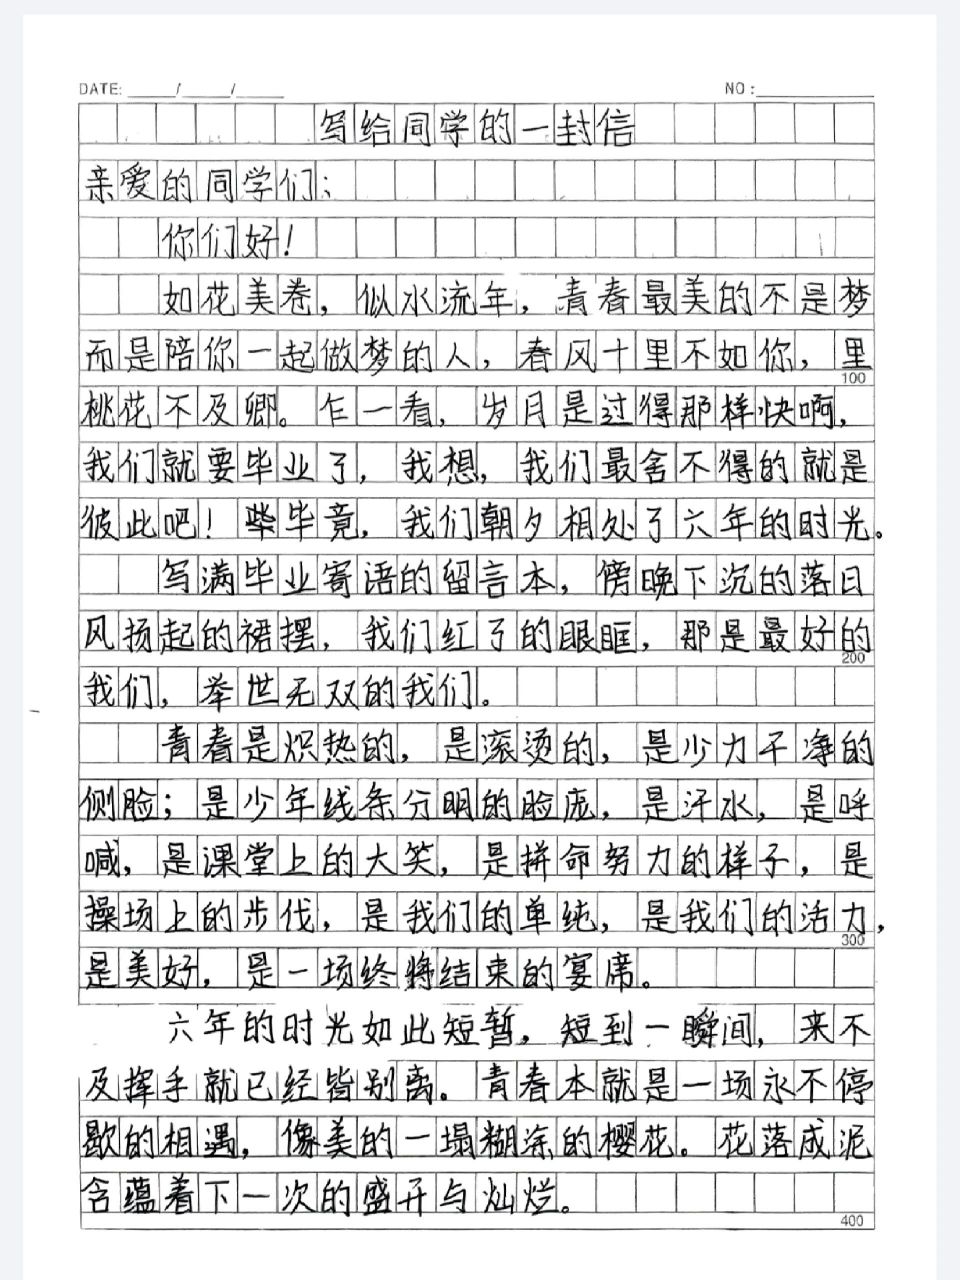 DATE: ____/____/____ NO:____________
写给同学的一封信
亲爱的同学们:
你们好!
如花美卷,似水流年,青春最美的不是梦
而是陪你一起做梦的人,春风十里不如你,里
100
桃花不及卿。乍一看,岁月是过得那样快啊,
我们就要毕业了,我想,我们最舍不得的就是
彼此吧!毕竟,我们朝夕相处了六年的时光。
写满毕业寄语的留言本,傍晚下沉的落日
风扬起的裙摆,我们红了的眼眶,那是最好的
200
我们,举世无双的我们。
青春是炽热的,是滚烫的,是少力干净的
侧脸;是少年线条分明的脸庞,是汗水,是呼
喊,是课堂上的大笑,是拼命努力的样子,是
操场上的步伐,是我们的单纯,是我们的活力,
300
是美好,是一场终将结束的宴席。
六年的时光如此短暂,短到一瞬间,来不
及挥手就已经皆别离。青春本就是一场永不停
歇的相遇,像美的一塌糊涂的樱花。花落成泥
含蕴着下一次的盛开与灿烂。
400